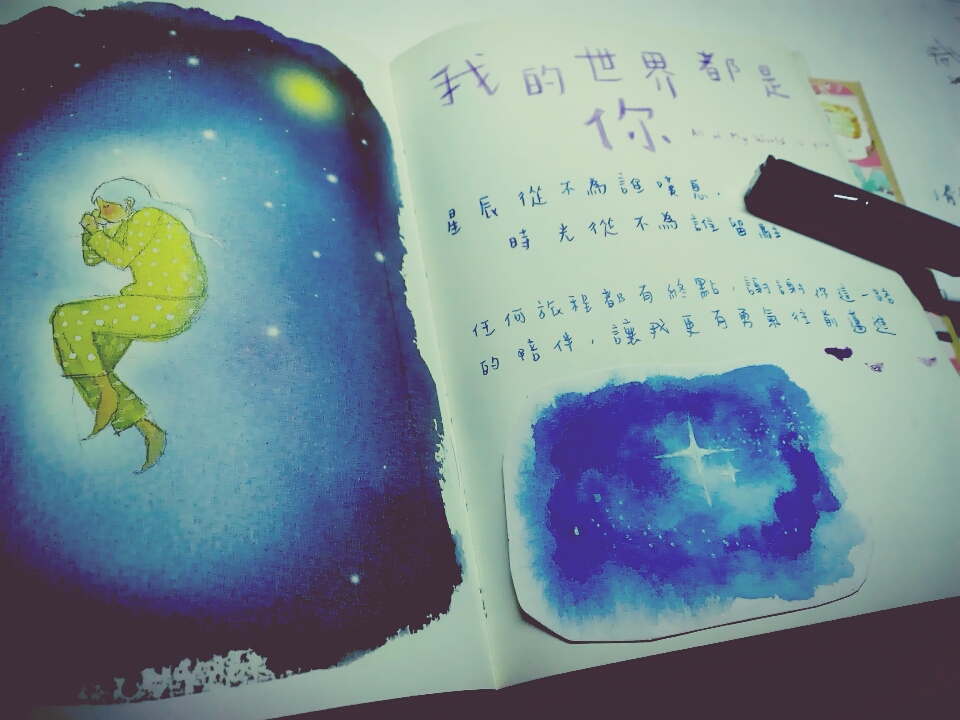 我的世界都是
你
All of My World is you
星辰從不為誰嘆息,
時光從不為誰留駐
任何旅程都有終點,謝謝你這一路
的陪伴,讓我更有勇氣往前邁進